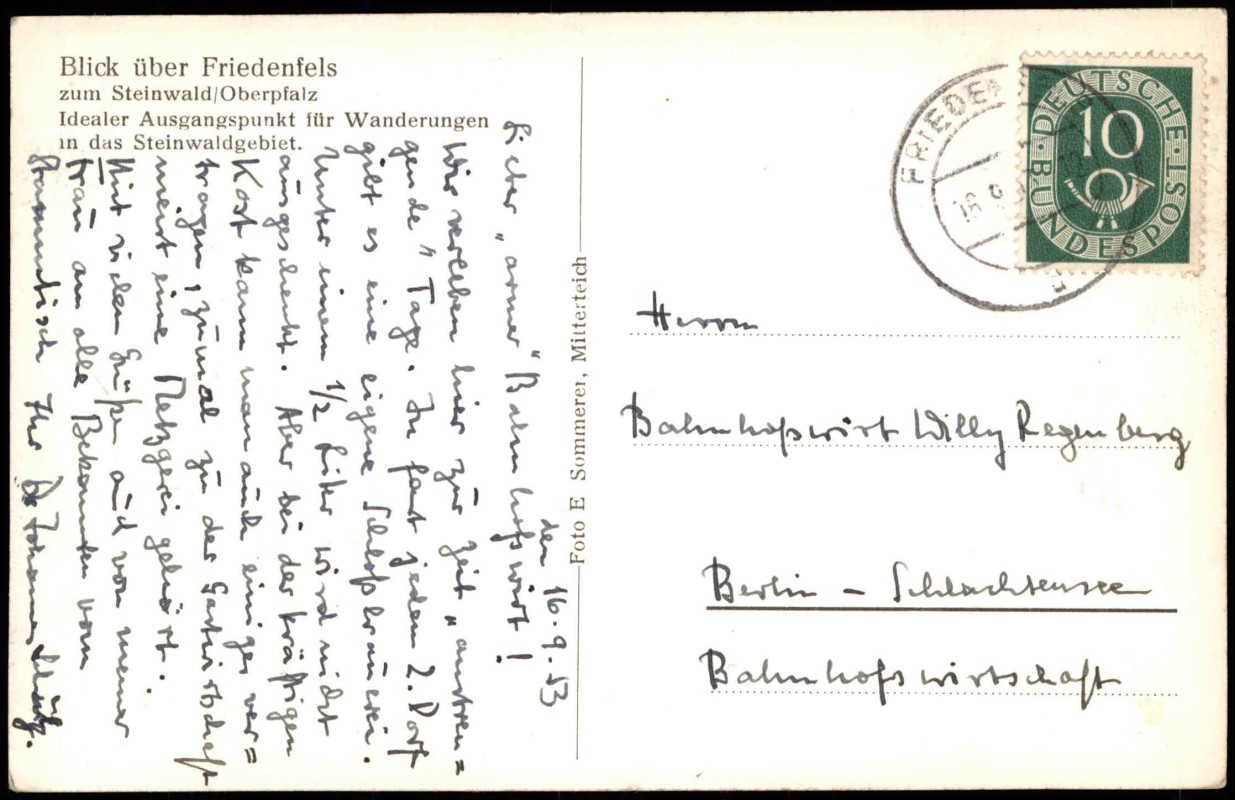 Blick über Friedenfels
zum Steinwald/Oberpfalz
Idealer Ausgangspunkt für Wanderungen
in das Steinwaldgebiet.
den 16.9.53
Lieber „armer" Bahnhofswirt!
Wir verleben hier zur Zeit „anstren=
gende" Tage. In fast jedem 2. Dorf
gibt es eine eigene Schloßbrauerei.
Unter einem 1/2 Liter wird nicht
ausgeschenkt. Aber bei der kräftigen
Kost kann man auch einiges ver=
tragen, zumal zu der Gastwirtschaft
meist eine Metzgerei gehört.
Mit vielen Grüßen auch von meiner
Frau an alle Bekannten vom
Stammtisch Ihr Dr Johannes
Foto E Sommerei, Mitterteich
FRIEDEN
16.9.
DEUTSCHE BUNDESPOST
10
Herrn
Bahnhofswirt Willy Regenberg
Berlin - Schlachtensee
Bahnhofswirtschaft